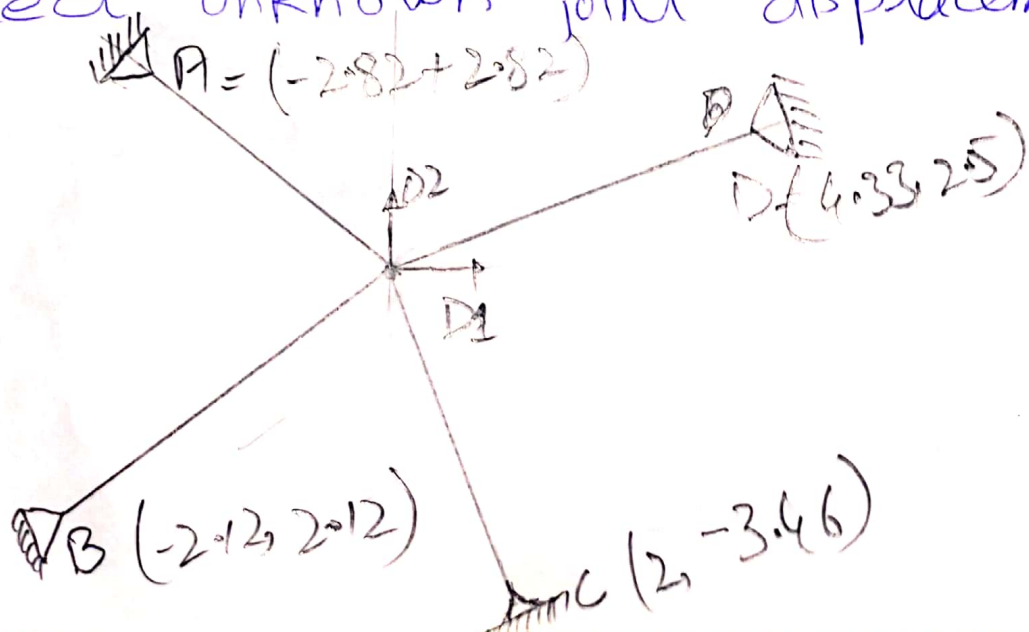 unknown joint
A = (-2.82+2.82)
D2
D
D(4.33,2.5)
D1
B (-2.12, 2.12)
C (2, -3.46)